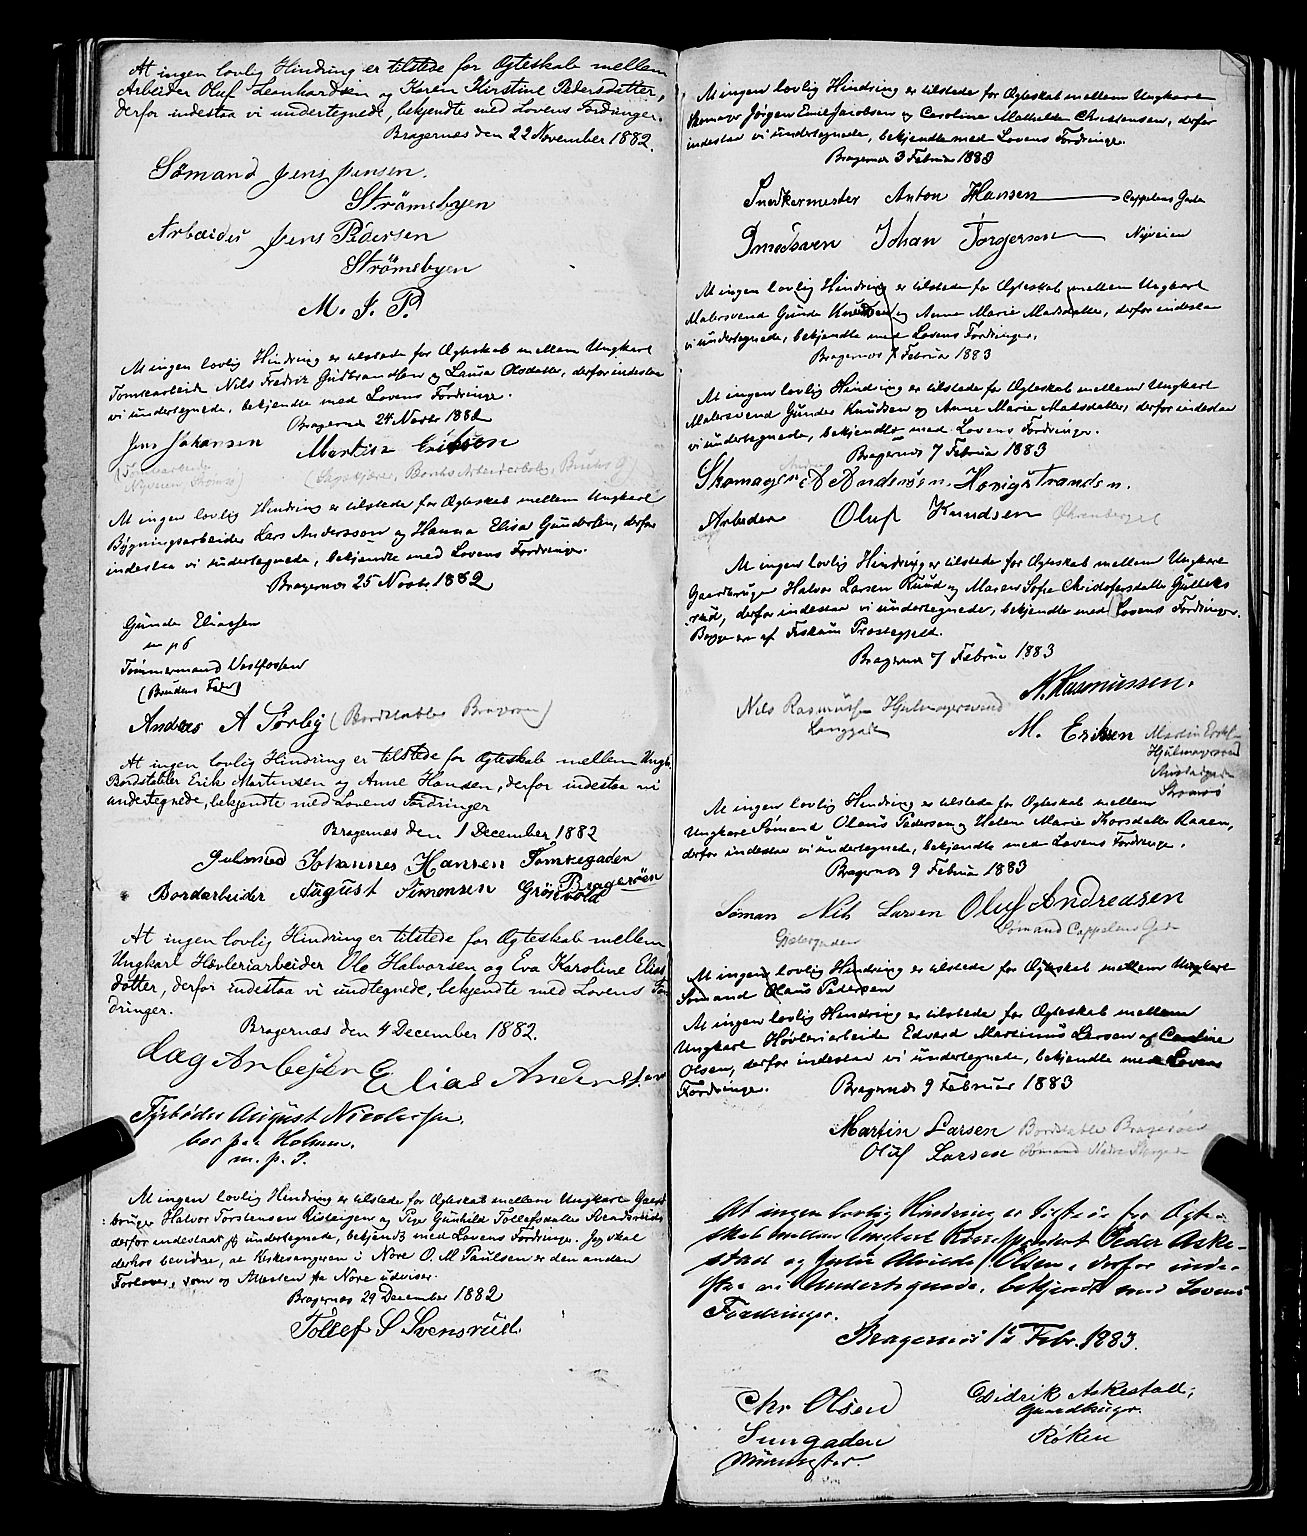 At ingen lovlig Hindring er tilstede for Ægteskab mellem
Arbeider Oluf Leonhardsen og Karen Kirstine Pedersdatter,
derfor indestaa vi undertegnede, bekjendte med Lovens Fordringer.
Bragernæs den 22 November 1882.
Sömand Jens Jensen.
Strömsbyen
Arbeider Jens Pedersen
Strömsbyen
M. J. P.
At ingen lovlig Hindring er tilstede for Ægteskab mellem Ungkarl
Tomtearbeider Nils Fredrik Gudbrandsen og Laura Olsdatter, derfor indestaa
vi undertegnede, bekjendte med Lovens Fordringer.
Bragernæs 24 Novbr 1882
Jens Johansen Martin Eriksen
Nyveien Strømsø)
At ingen lovlig Hindring er tilstede for Ægteskab mellem Ungkarl
Bygningsarbeider Lars Anderssow og Hanna Elisa Gundersen, derfor
indestaa vi undertegnede, bekjendte med Lovens Fordringer.
Bragernæs 25 Novbr. 1882
Gunder Eliassen
m p b
Tømmermand Vestfossen
(Brudens Fader)
Anders A Sørby (Bordstabler
At ingen lovlig Hindring er tilstede for Ægteskab mellem Ungk.
Bordstabler Erik Martinsen og Anne Hansen, derfor indestaa vi
undertegnede, bekjendte med Lovens Fordringer
Bragernæs den 1 December 1882
Gulsmed Johannes Hansen Tomtegaden
Bragerøen
Bordarbeider August Simonsen Grönvold
At ingen lovlig Hindring er tilstede for Ægteskab mellem
Ungkarl Høvleriarbeider Ole Halvorsen og Eva Karoline Elias
datter, derfor indestaa vi undtegnede, bekjendte med Lovens For
dringer.
Bragernæs den 4 December 1882.
dag Arbejder Elias Andersen
Fyrbøder August Nicolaisen
bor paa Holmen.
m. p. P.
At ingen lovlig Hindring er tilstede for Ægteskab mellem Ungkarl Gaard
bruger Halvor Torstensen og Pige Gunhild Tollefsdatter
derfor indestaar jeg undertegnede, bekjendt med Lovens Fordringer. Jeg skal
derhos bevidne, at Kirkesangeren i Nore O. M Paulsen er den anden
Forlover, som og Attesten fra Nore udviser.
Bragernæs 29 December 1882
Tollef S Svensrud
At ingen lovlig Hindring er tilstede for Ægteskab mellem Ungkarl
Skomager Jørgen Emil Jacobsen og Caroline Mathilde Christensen, derfor
indestaa vi undertegnede, bekjendte med Lovens Fordringer.
Bragernæs 3 Februar 1883
Snedkermester Anton Hansen Cappelens Gade
Smedsven Johan Torgersen Nyveien
At ingen lovlig Hindring er tilstede for Ægteskab mellem Ungkarl
Malersvend Gunder Knudsen og Anne Marie Madsdatter, derfor indestaa
vi undertegnede, bekjendte med Lovens Fordringer.
Bragernæs 7 Februar 1883
At ingen lovlig Hindring er tilstede for Ægteskab mellem Ungkarl
Malersvend Gunder Knudsen og Anne Marie Madsdatter, derfor indestaa
vi undertegnede, bekjendte med Lovens Fordringer.
Bragernæs 7 Februar 1883
Skomager A Andersen.
Arbeider Oluf Knudsen
At ingen lovlig Hindring er tilstede for Ægteskab mellem Ungkarl
Gaardbruger Halvor Larsen Ruud og Maren Sofie Christofersdatter Gulliks
rud, derfor indestaa vi undertegnede, bekjendte med Lovens Fordringer.
Begge ere af Fiskum Præstegjeld.
Bragernæs 7 Februar 1883
N. Rasmussen.
Nils Rasmussen Hjulmagersvend
Langgaden
M. Eriksen
Hjulmagersvend
Strømsø
At ingen lovlig Hindring er tilstede for Ægteskab mellem
Ungkarl Sømand Olaus Pedersen og Helene Marie Thorsdatter Raaen,
derfor indestaa vi undertegnede, bekjendte med Lovens Fordringer.
Bragernæs 9 Februar 1883
Søman Nils Larsen Oluf Andreasen
Sømand Cappelens Gade
At ingen lovlig Hindring er tilstede for Ægteskab mellem Ungkarl
Sømand Olaus Pedersen
At ingen lovlig Hindring er tilstede for Ægteskab mellem
Ungkarl Høvleriarbeider Edvard Martinius Larsen og Caroline
Olsen, derfor indestaa vi undertegnede, bekjendte med Lovens
Fordringer. Bragernæs 9 Februar 1883
Martin Larsen Bordstabler Bragerøen
Oluf Larsen Sømand
At ingen lovlig Hindring er tilstede for Ægte-
skab mellem Ungkarl Peder Aske-
stad og Alvilde Olsen, derfor inde-
staa vi Undertegnede, bekjendt med Lovens
Fordringer.
Bragernæs 15 Febr. 1883.
Chr Olsen
Murmester.
Didrik Askestad,
Gaardbruger.
Røken